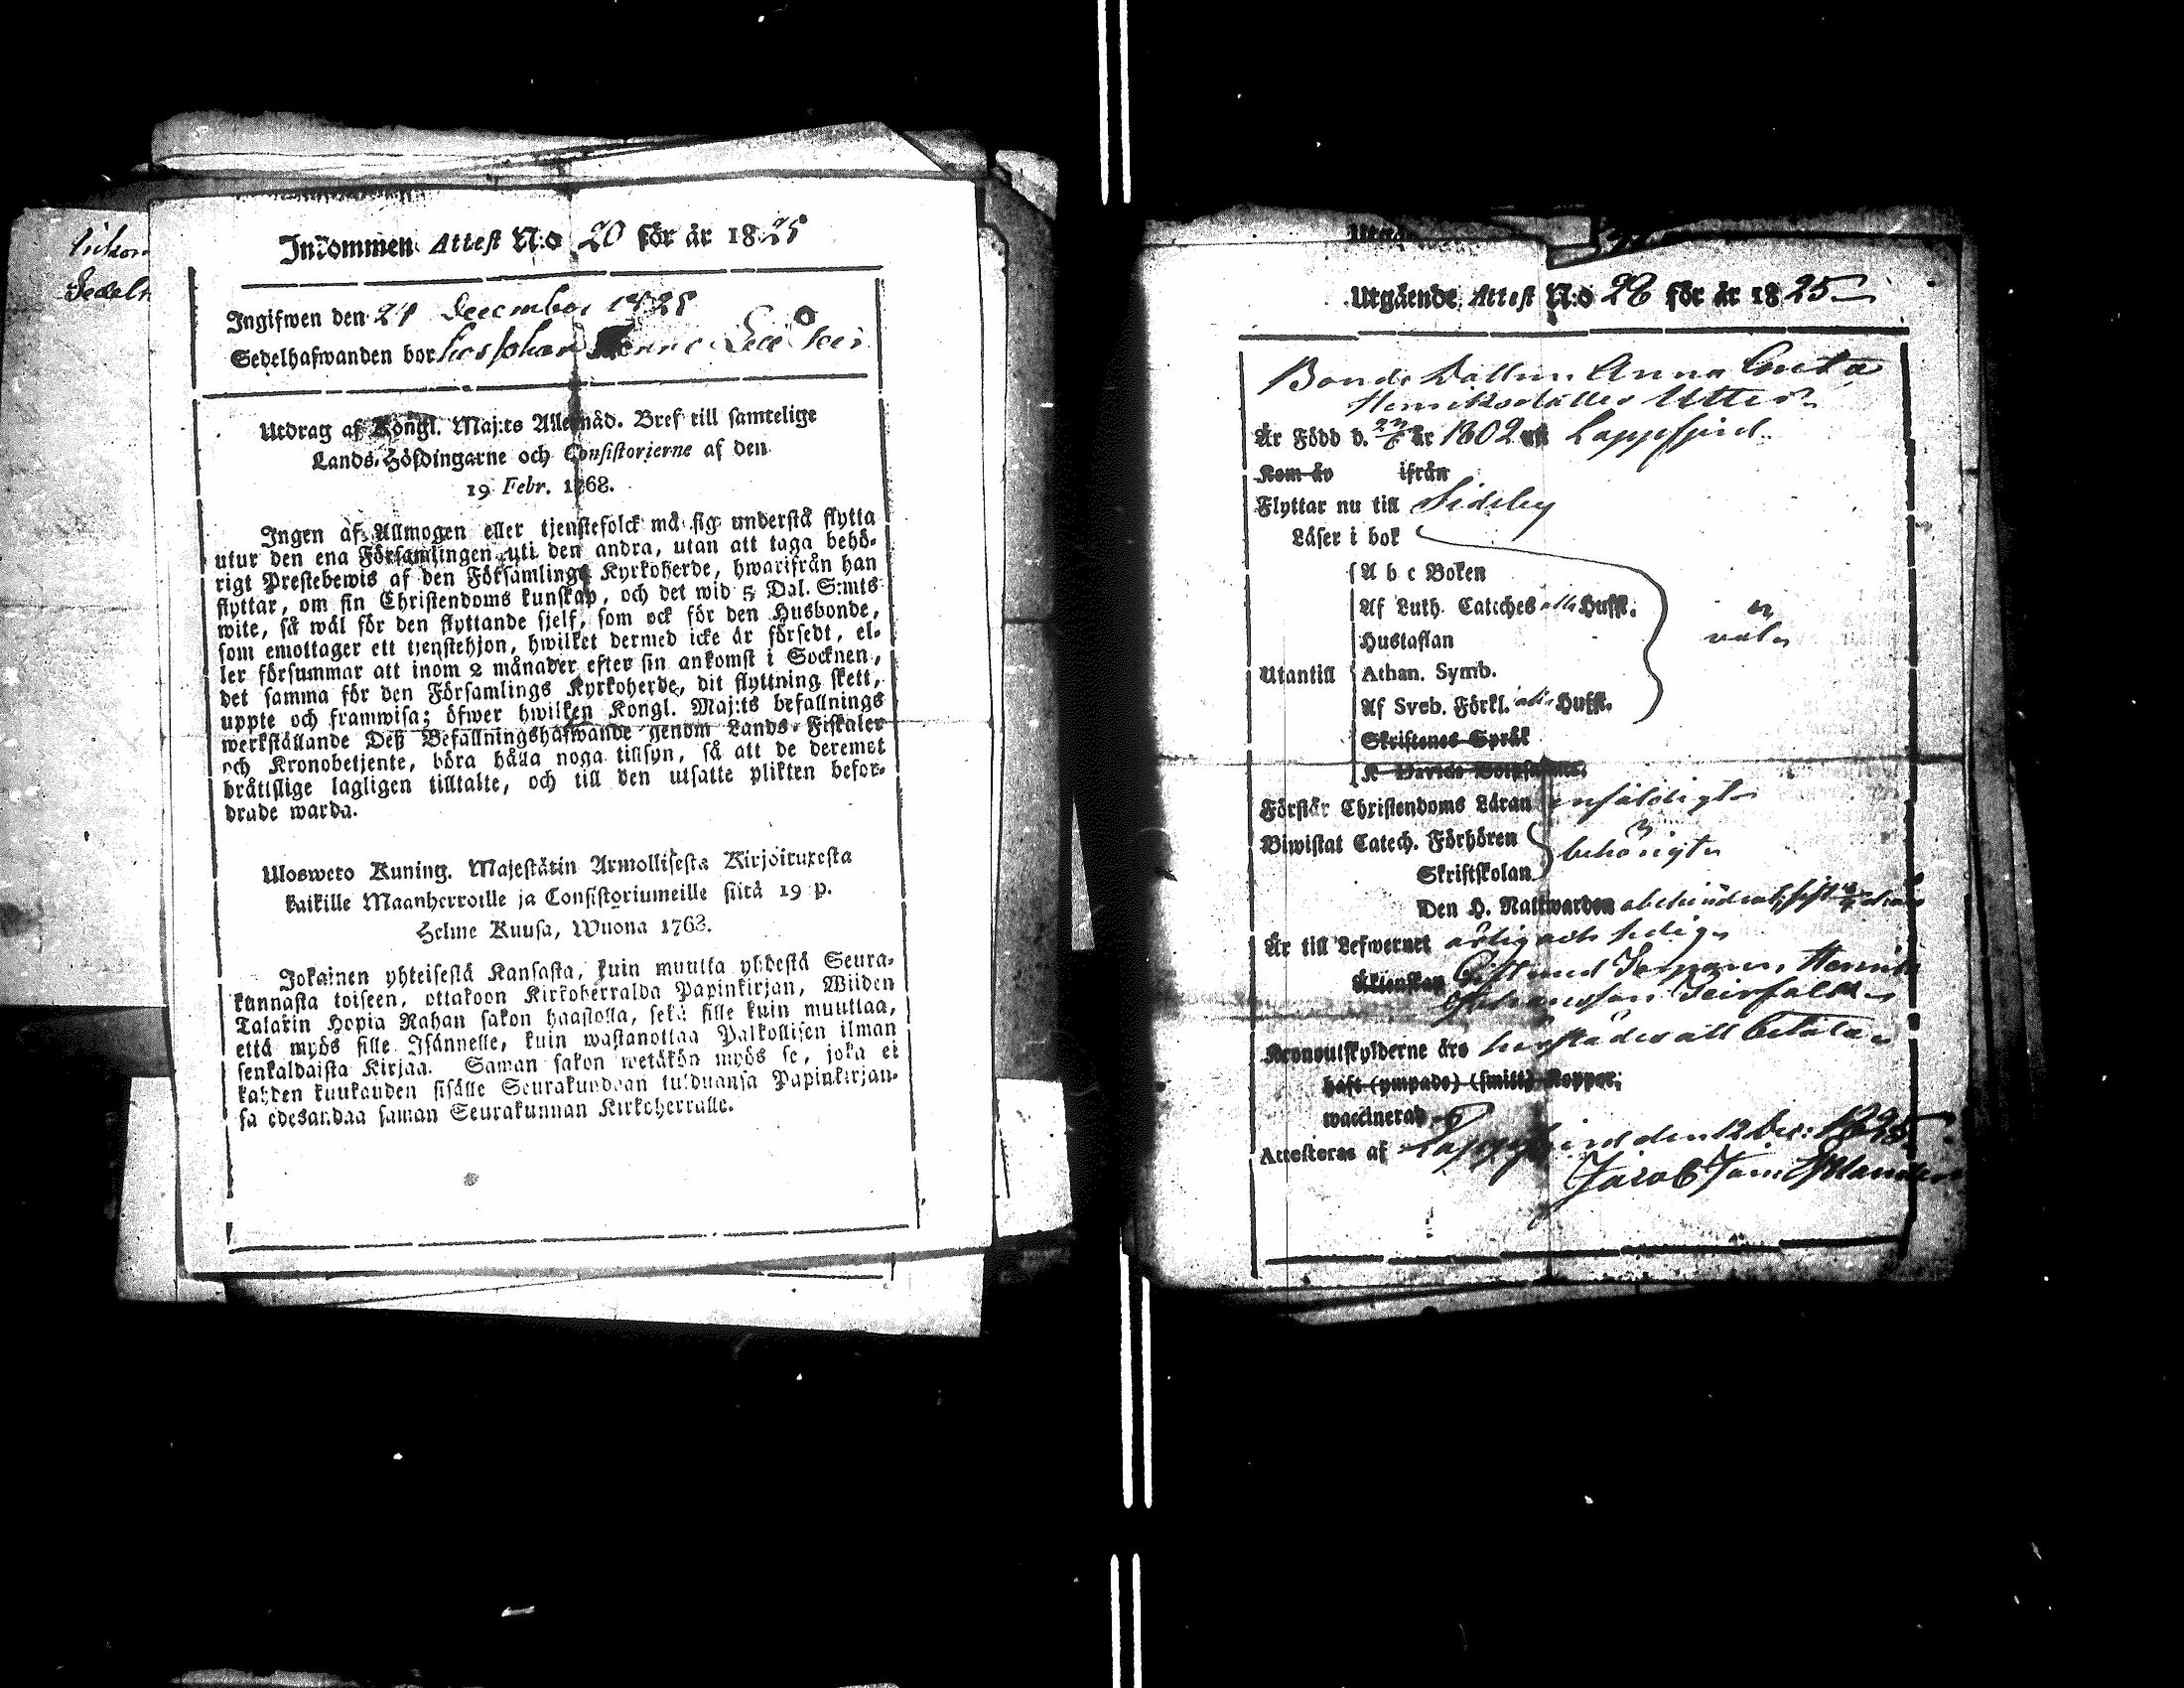 Inkommen Attest N:o 20 för år 1825
Ingifwen den 21 December 1825
Sedelhafwanden bor hos Johan
Utdrag af Köngl. Maj:ts Allernåd. Bref till samtelige
Lands-Höfdingarne och Consistorierne af den
19 Febr. 1768.
Ingen af Allmogen eller tjenstefolck må sig understå flytta
utur den ena Församlingen uti den andra, utan att taga behö-
rigt Prestebewis af den Församlings Kyrkoherde, hwarifrån han
flyttar, om sin Christendoms kunskap, och det wid 5 Dal. S:mts
wite, så wäl för den flyttande sjelf, som ock för den Husbonde,
som emottager ett tjenstehjon, hwilket dermed icke är försedt, el-
ler försummar att inom 2 månader efter sin ankomst i Socknen,
det samma för den Församlings Kyrkoherde, dit flyttning skett,
uppte och framwisa; öfwer hwilken Kongl. Maj:ts befallnings
werkställande Deß Befallningshafwande genom Lands-Fiskaler
och Kronobetjente, böra hålla noga tillsyn, så att de deremot
bråttslige lagligen tilltalte, och till den utsatte plikten befor-
drade warda.
Ulosweto Kuning. Majestätin Armollisesta Kirjoituxesta
kaikille Maanherroille ja Consistoriumeille siitä 19 p.
Helme Kuusa, Wuona 1768.
Jokainen yhteisestä Kansasta, kuin muutta yhdestä Seura-
kunnasta toiseen, ottakoon Kirkoherralda Papinkirjan, Wiiden
Talarin Hopia Rahan sakon haastolla, sekä sille kuin muuttaa,
että myös sille Isännelle, kuin wastanottaa Palkollisen ilman
senkaldaista Kirjaa. Saman sakon wetäkön myös se, joka ei
kahden kuukauden sisälle Seurakundaan tulduansa Papinkirjan-
sa edesandaa saman Seurakunnan Kirkoherralle.
Utgående Attest N:o 28 för år 1825
Bonde Dottren Anna Greta
Henriksdotter Utter
Är Född d. 22/6 år 1802 uti Lappfjerd
Kom år ifrån
Flyttar nu till Sideby
Läser i bok
A b c Boken
Af Luth. Cateches alla Hufst.
Hustaflan
väl
Utantill Athan. Symb.
Af Sveb. Förkl. alla Hufst.
Skriftenes Språk
Förstår Christendoms Läran enfäldigt
Biwistat Catech. Förhören
Skriftskolan
behörigt
Den H. Nattwarden
Är till Lefwernet ärlig och sedig
Äktenskap Gift med Henrik
Kronoutskylderne äro att betala
haft (ympade) (smitt) Koppor;
waccinerad
Attesteras af Lappfjerd den 12 Dec: 1825
Jacob